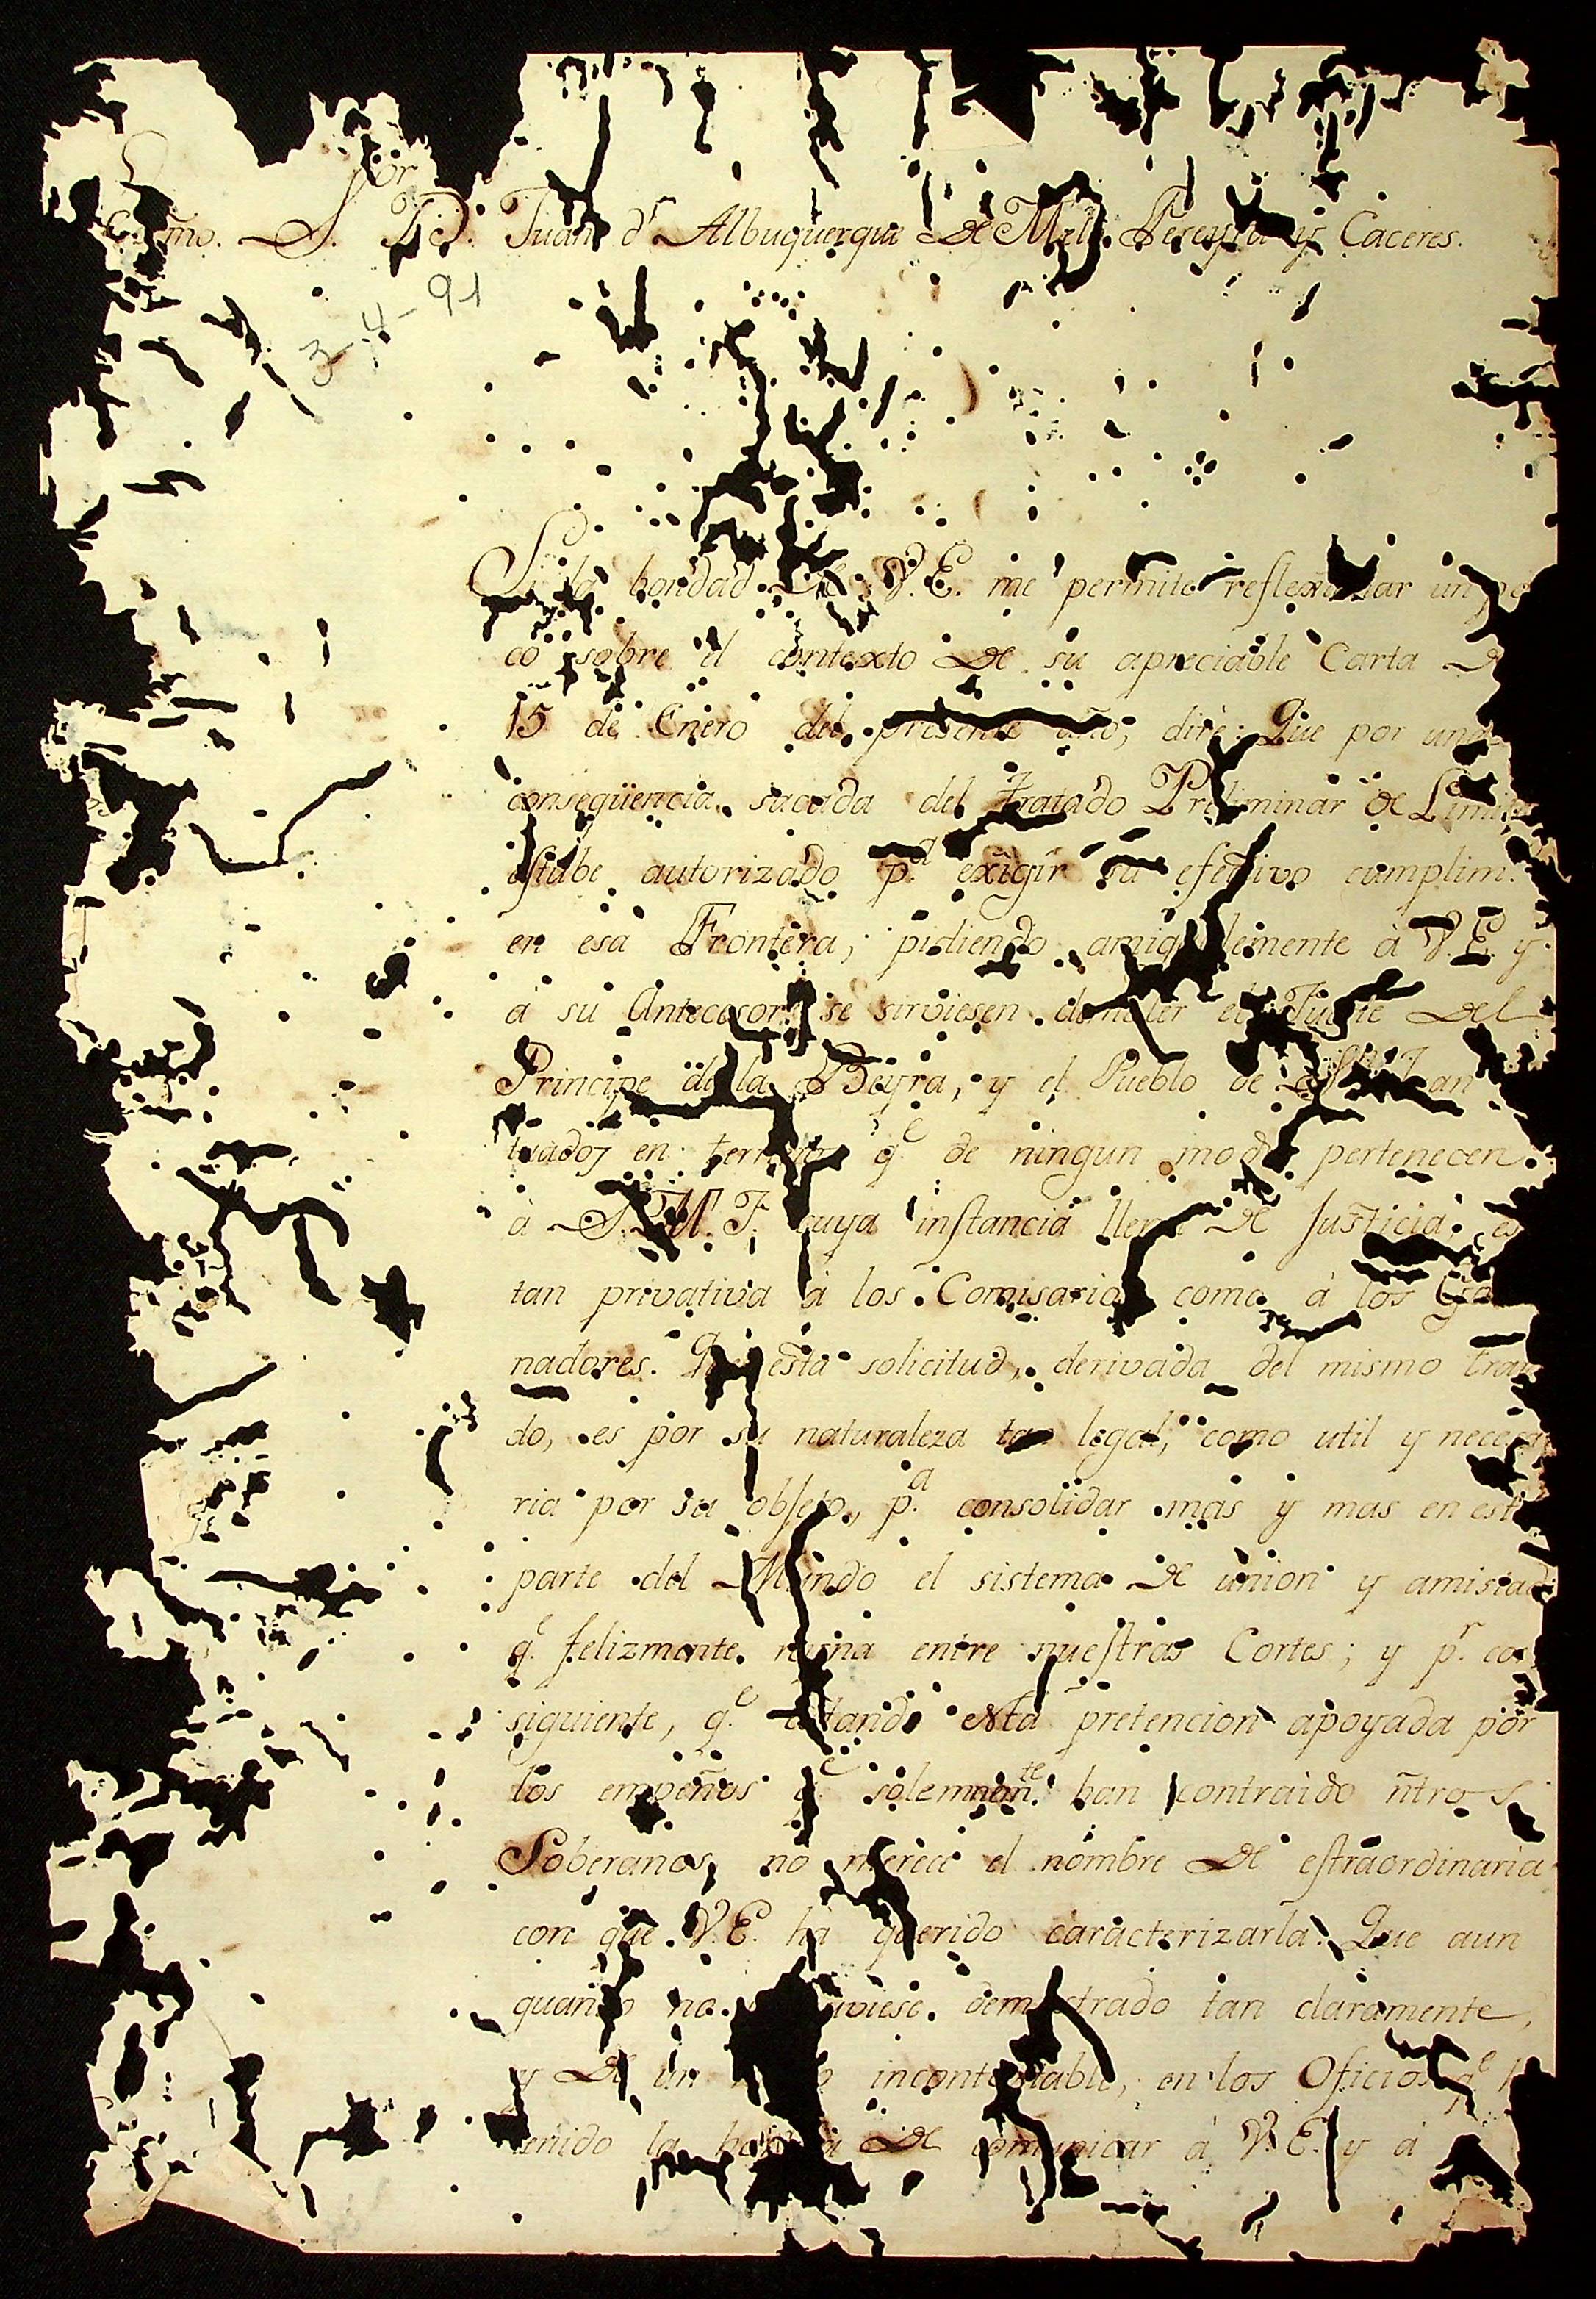 mo. S.or D. Juan d' Albuquerque de Melo Pereyra y Caceres.
3-4-91
Si la bondad de V.E. me permite reflexionar un po
co sobre el contexto de su apreciable Carta de
15 de Enero del presente año; diré: Que por una
conseqüencia sacada del Tratado Preliminar de Limites
estube autorizado p.a exigir su efectivo cumplim.
en esa Frontera, pidiendo amigablemente à V.E. y
à su Antecesor, se sirviesen demoler el Fuerte del
Principe de la Beyra, y el Pueblo de
tuados en terreno q.e de ningun modo pertenecen
à S.M.F. cuya instancia llena de Justicia, es
tan privativa à los Comisarios como à los Go
nadores. Que esta solicitud, derivada del mismo trata
do, es por su naturaleza tan legal, como util y necesa
ria por su objeto, p.a consolidar mas y mas en esta
parte del Mundo el sistema de union y amistad
q.e felizmente reyna entre nuestras Cortes; y p.r con
siguiente, q.e estando esta pretencion apoyada por
los empeños q.e solemnem.te han contraido ñtros
Soberanos, no merece el nombre de estraordinaria
con que V.E. hà querido caracterizarla. Que aun
quando no viese demostrado tan claramente,
y de un incontestable, en los Oficios q.e
tenido la honrra de comunicar à V.E. y à